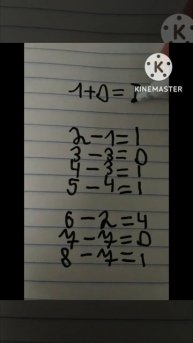 K
K
KINEMASTER
1+0=
2-1=1
3-3=0
4-3=1
5-4=1
6-2=4
7-7=0
8-7=1